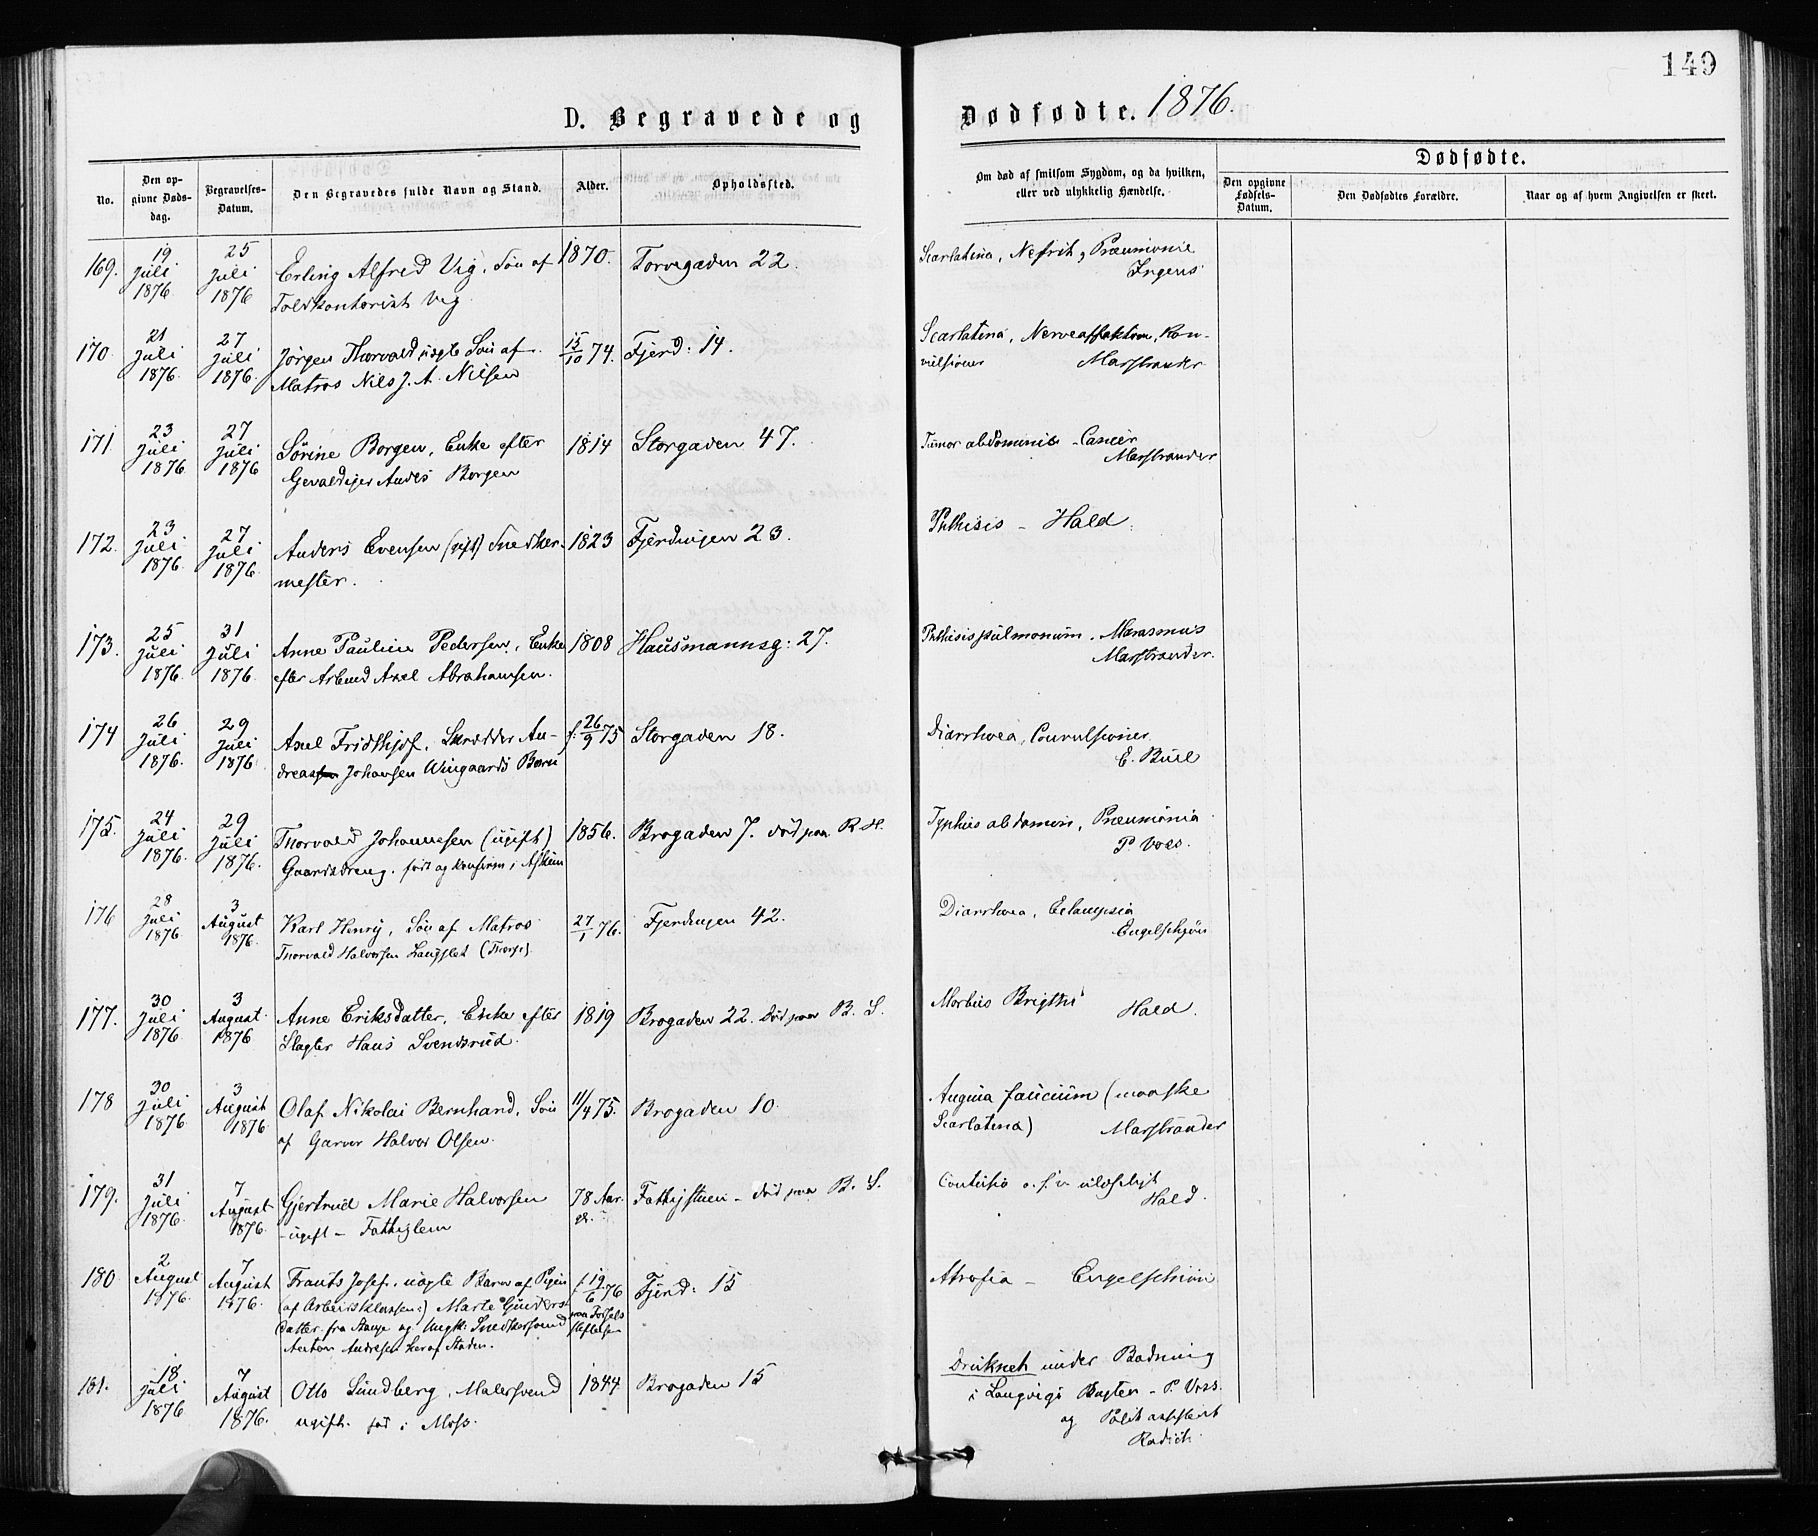 149
D. Begravede og Dødfødte. 1876.
No.
Den opgivne Dødsdag.
Begravelses-Datum.
Den Begravedes fulde Navn og Stand.
Alder.
Opholdssted.
Om død af smitsom Sygdom, og da hvilken, eller ved ulykkelig Hændelse.
Dødfødte.
Den opgivne Fødsels-Datum.
Den Dødfødtes Forældre.
Naar og af hvem Angivelsen er skeet.
169. 19 Juli 1876. 25 Juli 1876 Erling Alfred Vig, Søn af 1870. Torvegaden 22. Scarlatina, Nefrit, Pneumonie
Toldkontorist Vig. Ingens
170. 21 Juli 1876. 27 Juli 1876. Jörgen Thorvald, uægte Søn af 15/10 74. Fjerd: 14. Scarlatina, Nerveaffektion, Kon-
Matros Nils J. A. Nilsen vulsioner Marstrander
171. 23 Juli 1876. 27 Juli 1876 Sörine Borgen, Enke efter 1814 Storgaden 47. Tumor abdominis - Cancer
Gevaldiger Anders Borgen Marstrander
172. 23 Juli 1876. 27 Juli 1876. Anders Evensen (gift) Snedker- 1823 Fjerdingen 23. Phthisis - Hald.
mester.
173. 25 Juli 1876. 31 Juli 1876. Anne Pauline Pedersen, Enke 1808 Hausmannsg: 27. Phthisis pulmonum. Marasmus
efter Arbmd Axel Abrahamsen. Marstrander.
174 26 Juli 1876. 29 Juli 1876. Axel Fridthjof, Skrædder An- f. 26/9 75 Storgaden 18. Diarrhoea, Convulsioner
dreas Johansen Wingaards Barn E. Bull
175. 24 Juli 1876. 29 Juli 1876. Thorvald Johannesen (ugift) 1856. Brogaden 7. död paa R. H. Typhus abdomin, Pneumonia
Gaardsdreng. født og konfirm i Askim P. Voss.
176 28 Juli 1876. 3 August 1876. Karl Henry, Søn af Matros 27/1 76. Fjerdingen 42. Diarrhoea, Eclampsia
Thorvald Halvorsen Langslet Engelschjön
177. 30 Juli 1876. 3 August 1876 Anne Eriksdatter, Enke efter 1819 Brogaden 22. Död paa B. S. Morbus Brigthi Hald.
Slagter Hans Svendsrud.
178 30 Juli 1876. 3 August 1876. Olaf Nikolai Bernhard, Søn 11/4 75. Brogaden 10. Angina faucium (maaske
af Garver Halvor Olsen. Scarlatina) Marstrander
179. 31 Juli 1876. 7 August 1876. Gjertrud Marie Halvorsen 78 Aar gl. Fattigstuen - död paa B. S. Contusio o.s.v. ulæseligt
- ugift - Fattiglem Hald.
180 2 August 1876. 7 August 1876. Frants Josef, uægte Barn af Pigen f. 19/6 76 paa Fødsels stiftelsen Fjerd: 15 Atrofia - Engelschiön
(af Arbeidsklassen:) Marte Gunders
datter fra Stange og Ungk: Snedkersvend
Anton Andresen her af Staden.
181. 18 Juli 1876 7 August 1876. Otto Sundberg, Malersvend 1844. Brogaden 15 Druknet under Badning
ugift. fød i Moss. i Langvigs Bugten - P. Voss.
og Politassistent
Radich.